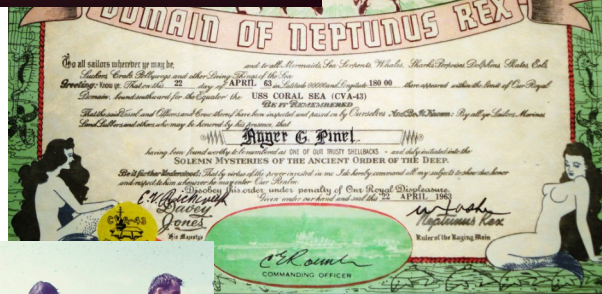 DOMAIN OF NEPTUNUS REX
To all sailors wherever ye may be, and to all Mermaids, Sea Serpents, Whales, Sharks, Porpoises, Dolphins, Skates, Eels,
Suckers, Crabs, Pollywogs and other Living Things of the Sea
Greeting: Know ye: That on this 22 day of APRIL 63 in Latitude 00000 and Longitude 180 00 there appeared within the limit of Our Royal
Domain bound southward for the Equator the USS CORAL SEA (CVA-43)
BE IT REMEMBERED
That the said Vessel and Officers and Crew thereof have been inspected and passed on by Ourselves And Be It Known: By all ye Sailors, Marines
Land Lubbers and others who may be honored by his presence, that
Roger G. Pinel
having been found worthy to be numbered as ONE OF OUR TRUSTY SHELLBACKS and duly initiated into the
SOLEMN MYSTERIES OF THE ANCIENT ORDER OF THE DEEP.
Be it further Understood: That by virtue of the power invested in me I do hereby command all my subjects to show due honor
and respect to him wherever he may enter Our Realm.
Disobey this order under penalty of Our Royal Displeasure.
Given under our hand and seal this 22 APRIL 1963
Davey
Jones
His Majesty's
CVA-43
Neptunus Rex
Ruler of the Raging Main
COMMANDING OFFICER